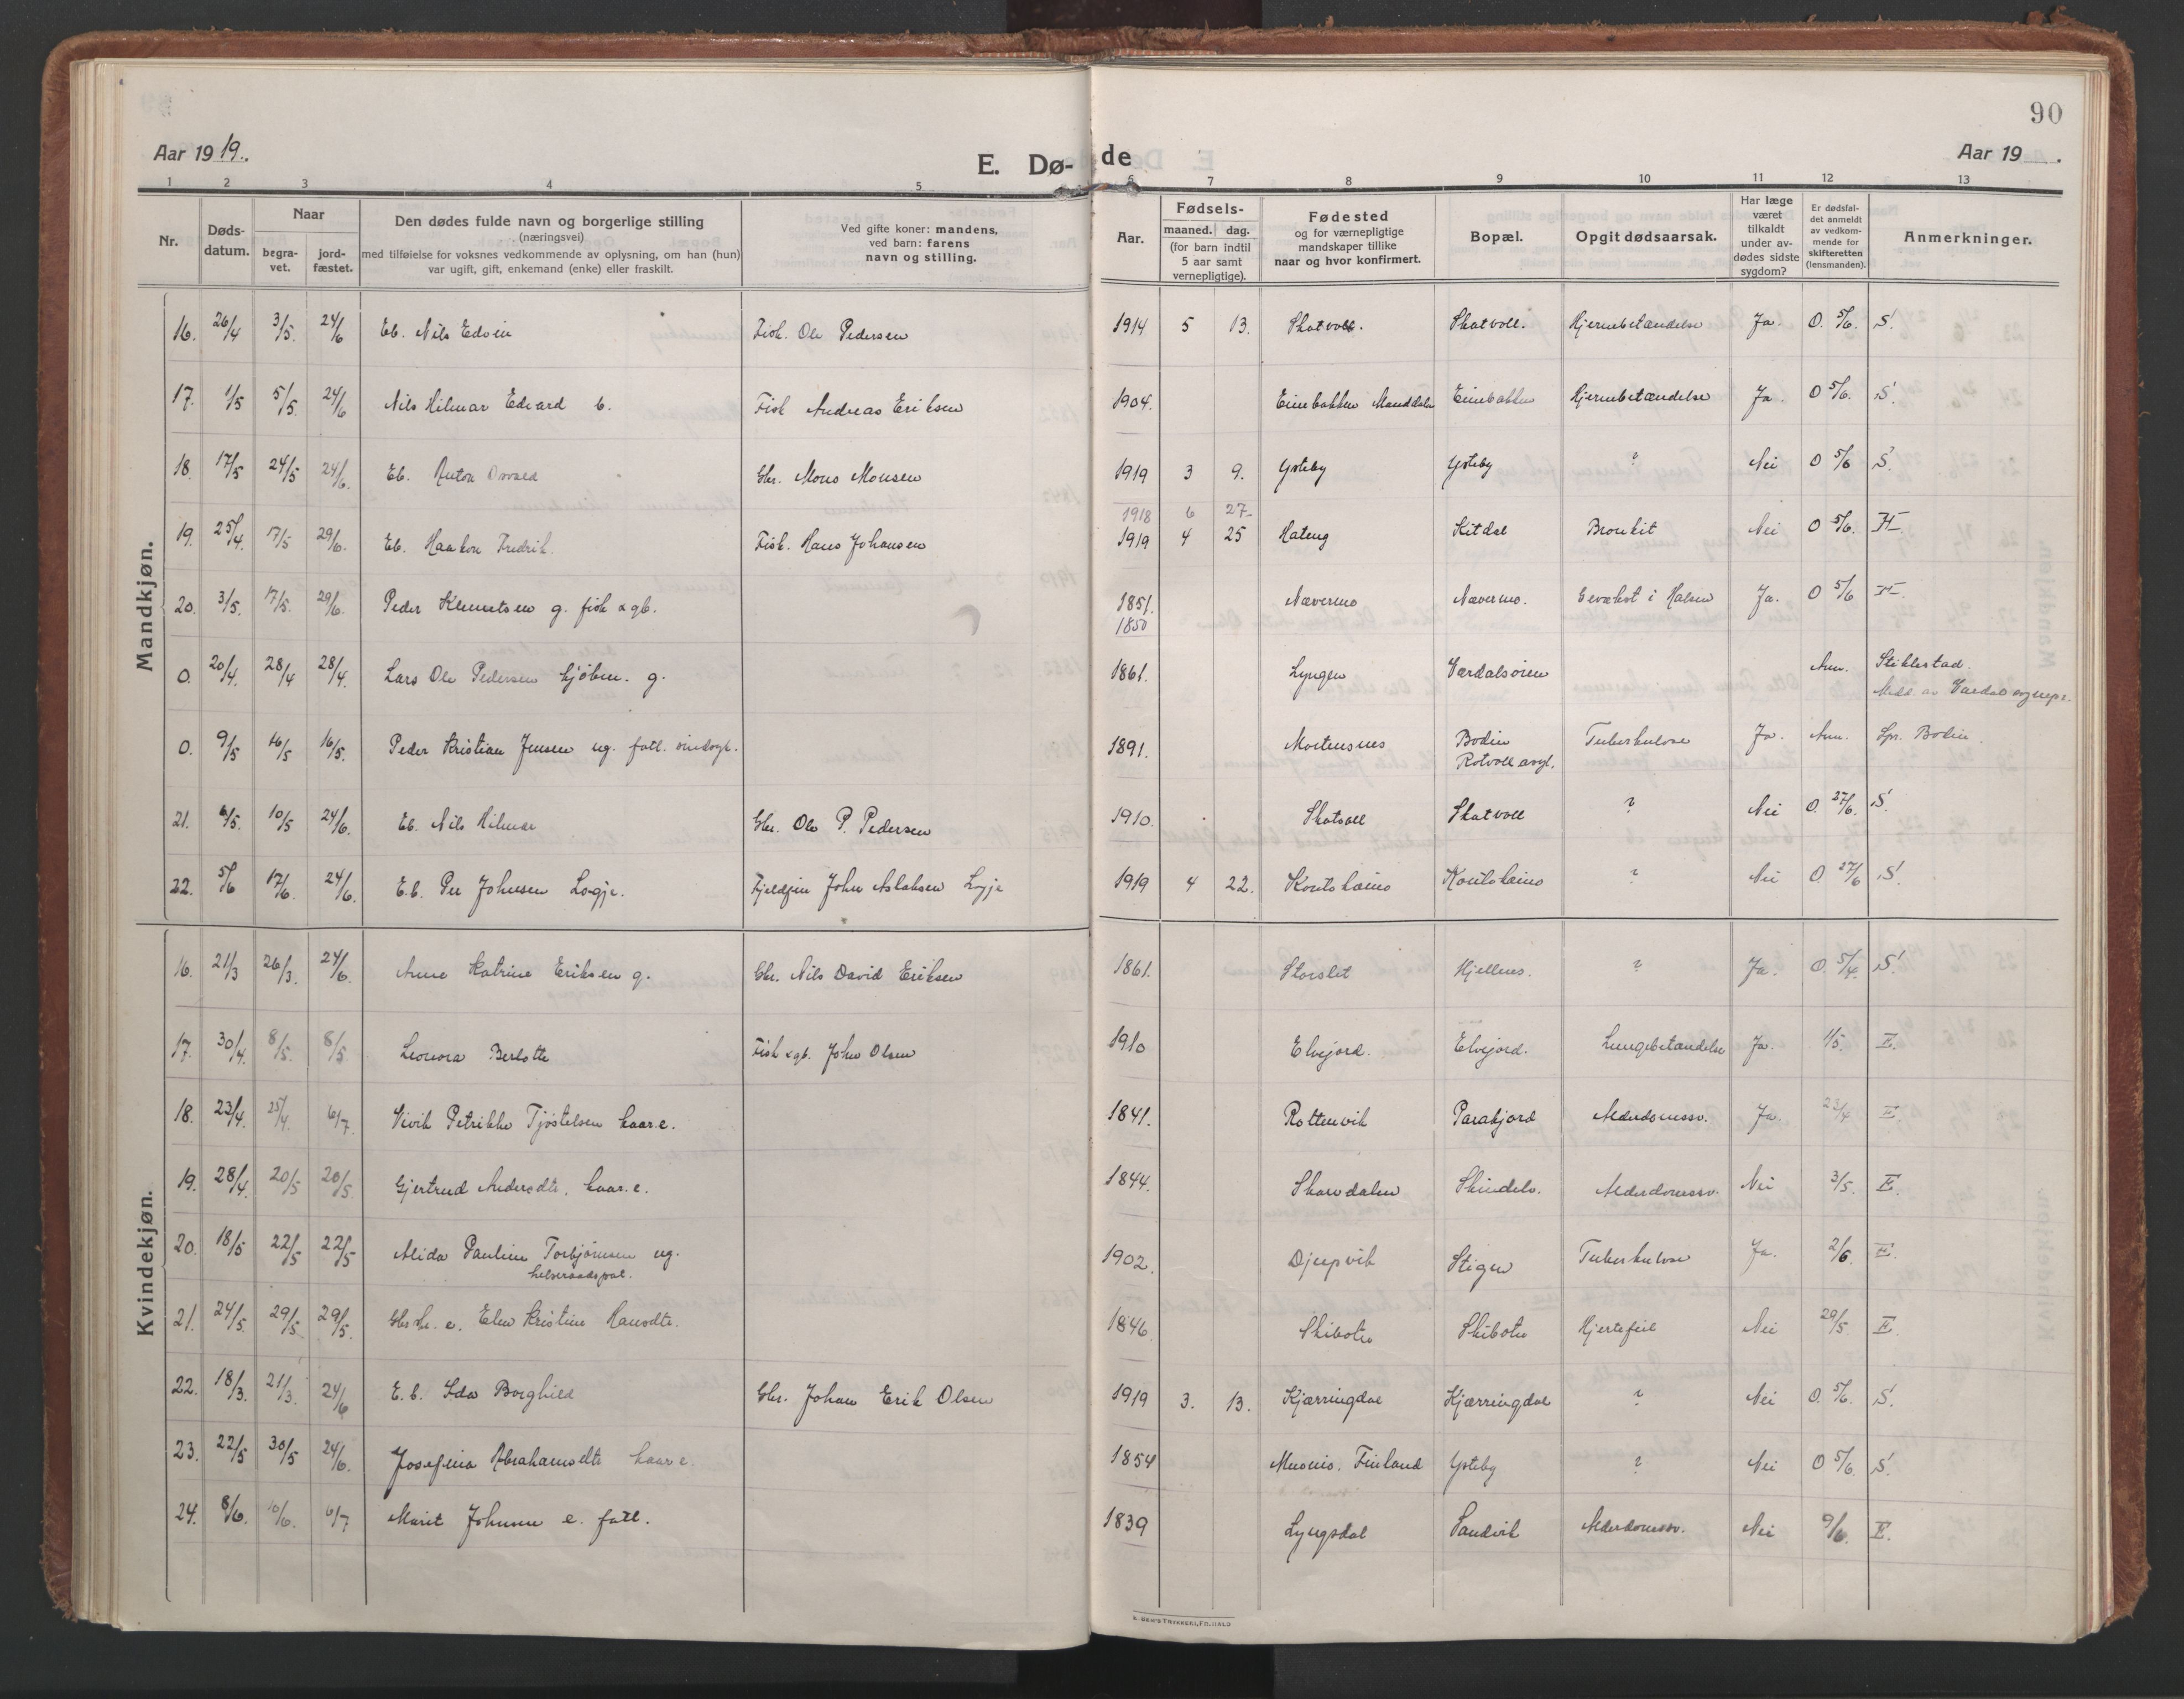 90
Aar 1919.
E. Dø-
de
Aar 19 .
1 2 3 4 5 6 7 8 9 10 11 12 13
Nr.
Døds-
datum.
Naar
begra-
vet.
jord-
fæstet.
Den dødes fulde navn og borgerlige stilling
(næringsvei)
med tilføielse for voksnes vedkommende av oplysning, om han (hun)
var ugift, gift, enkemand (enke) eller fraskilt.
Ved gifte koner: mandens,
ved barn: farens
navn og stilling.
Aar.
Fødsels-
maaned. dag.
(for barn indtil
5 aar samt
vernepligtige).
Fødested
og for værnepligtige
mandskaper tillike
naar og hvor konfirmert.
Bopæl.
Opgit dødsaarsak.
Har læge
været
tilkaldt
under av-
dødes sidste
sygdom?
Er dødsfal-
det anmeldt
av vedkom-
mende for
skifteretten
(lensmanden).
Anmerkninger.
Mandkjøn.
16. 26/4 3/5. 24/6 Eb. Nils Edvin Fisk. Ole Pedersen 1914 5 13. Skatvoll. Skatvoll. Hjernebetændelse Ja. O. 5/6. S.
17. 1/5 5/5. 24/6 Nils Hilmar Edvard b. Fisk Andreas Eriksen 1904. Einebakken Manddalen Einebakken Hjernebetændelse Ja. O 5/6. S.
18. 17/5 24/5 24/6. Eb. Anton Gbr. Mons Monsen 1919 3 9. Ysteby Ysteby ? Nei O 5/6 S.
1918 6 27
19. 25/4. 17/5 29/6. Eb. Haakon Fredrik. Fisk. Hans Johansen 1919 4 25 Hateng Kitdal Bronkit Nei O 5/6. H
20. 3/5. 17/5. 29/6. Peder Klemetsen g. fisk & gb. 1851. Nævermo Nævermo. Ja. O 5/6 H
1850
O. 20/4. 28/4 28/4. Lars Ole Pedersen g. 1861. Lyngen Værdalsøren Anm. Stiklestad.
O. 9/5 16/5 16/5. Peder Kristian Jensen ug. fatt. sindsyk. 1891. Mortensnes Bodin Tuberkulose Ja. Anm. Spr. Bodin.
Rotvoll asyl.
21. 6/5. 10/5 24/6. Eb. Nils Hilmar Gbr. Ole P. Pedersen 1910. Skatvoll Skatvoll ? Nei O. 27/6. S.
22. 5/6 17/6. 24/6. E.b. Per Johnsen Logje. Fjeldfin John Aslaksen Logje 1919 4 22. Koutokeino Koutokeino ? Nei O. 27/6 S.
Kvindekjøn.
16. 21/3 26/3. 24/6. Anne Katrine Eriksen g. Gbr. Nils David Eriksen 1861. Storslet Hjellnes. ? Ja. O. 5/4. S.
17. 30/4. 8/5. 8/5 Leonora Berlotte Fisk & gb. John Olsen 1910 Elvejord. Elvejord. Lungebetændelse Ja. 1/5. E.
18. 23/4. 25/4. 6/7. Vivik Petrikke Tjøstelsen kaar e. 1841. Rottenvik Parakjord Alderdomssv. Ja. 23/4 E.
19. 28/4. 20/5 20/5. Gjertrud Andersdtr. kaar. e. 1844. Skardalen Skindelv. Alderdomssv. Nei 3/5. E.
20. 18/5 22/5 22/5 Alida Pauline Torbjørnsen ug. 1902. Djupvik Stigen Tuberkulose Ja. 2/6. E.
21. 24/5. 29/5. 29/5. e. Elen Kristine Hansdtr. 1846. Skibotn Skibotn Hjertefeil Nei 29/5. E.
22. 18/3. 21/3. 24/6 E.b. Ida Borghild Gbr. Johan Erik Olsen 1919 3. 13. Kjærringdal Kjærringdal ? Nei O. 5/6. S.
23. 22/5 30/5 24/6. Josefina Abrahamsdtr kaar e. 1854 Muonio. Finland Ysteby ? Nei O 5/6. S.
24. 8/6. 10/6. 6/7 Marit Johnsen e. fatt. 1839 Lyngsdal Sandvik Alderdomssv. Nei 9/6. E.